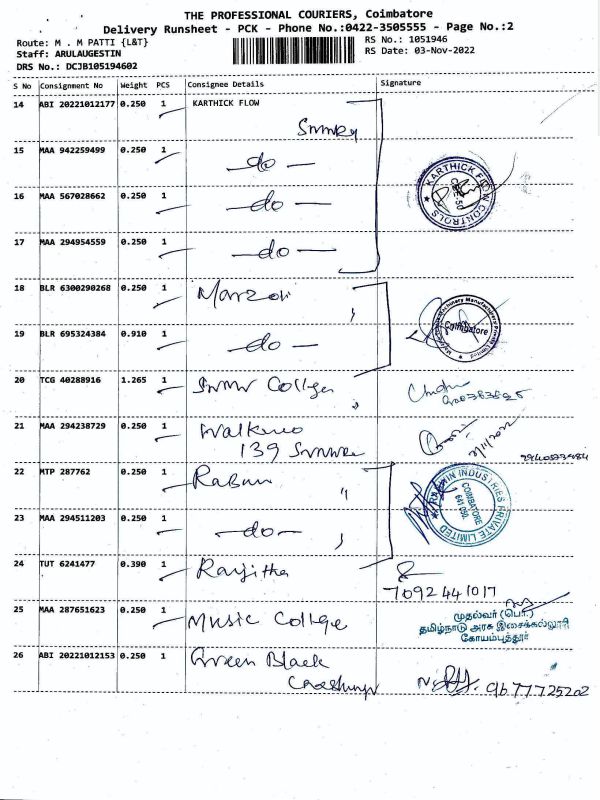 THE PROFESSIONAL COURIERS, Coimbatore
Delivery Runsheet - PCK - Phone No.:0422-3505555 - Page No.:2
Route: M . M PATTI {L&T}
RS No.: 1051946
Staff: ARULAUGESTIN
RS Date: 03-Nov-2022
DRS No.: DCJB105194602
S No Consignment No Weight PCS Consignee Details Signature
14 ABI 20221012177 0.250 1 KARTHICK FLOW
15 MAA 942259499 0.250 1 -do-
KARTHICK FLOW CONTROLS
16 MAA 567028662 0.250 1 -do-
17 MAA 294954559 0.250 1 -do-
18 BLR 6300290268 0.250 1
19 BLR 695324384 0.910 1 -do-
Coimbatore
20 TCG 40288916 1.265 1 College
21 MAA 294238729 0.250 1
139
22 MTP 287762 0.250 1
INDUSTRIES PRIVATE LIMITED
COIMBATORE
641 050.
23 MAA 294511203 0.250 1 -do-
24 TUT 6241477 0.390 1 Ranjitha
7092441017
25 MAA 287651623 0.250 1 Music College
முதல்வர் (பொ)
தமிழ்நாடு அரசு இசைக்கல்லூரி
கோயம்புத்தூர்
26 ABI 20221012153 0.250 1 Green Black
9677725202